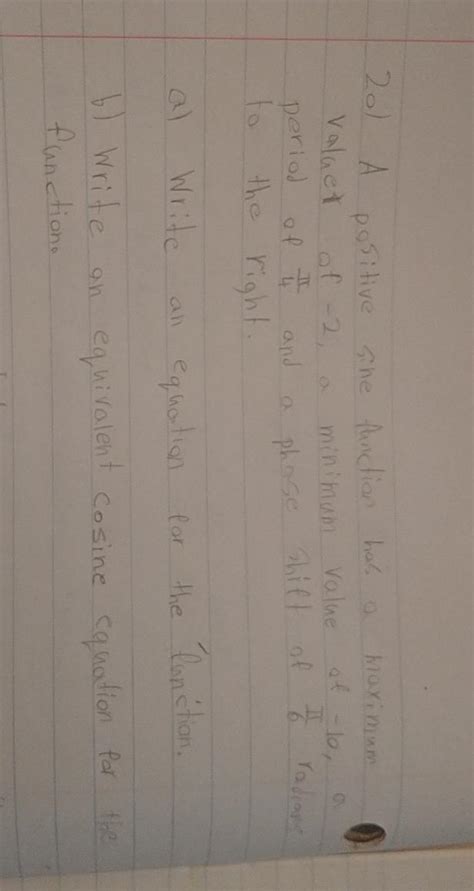 20) A positive sine function has a maximum
value of -2, a minimum value of -10, a
period of π/4 and a phase shift of π/6 radians
to the right.
a) Write an equation for the function.
b) Write an equivalent cosine equation for the
function.